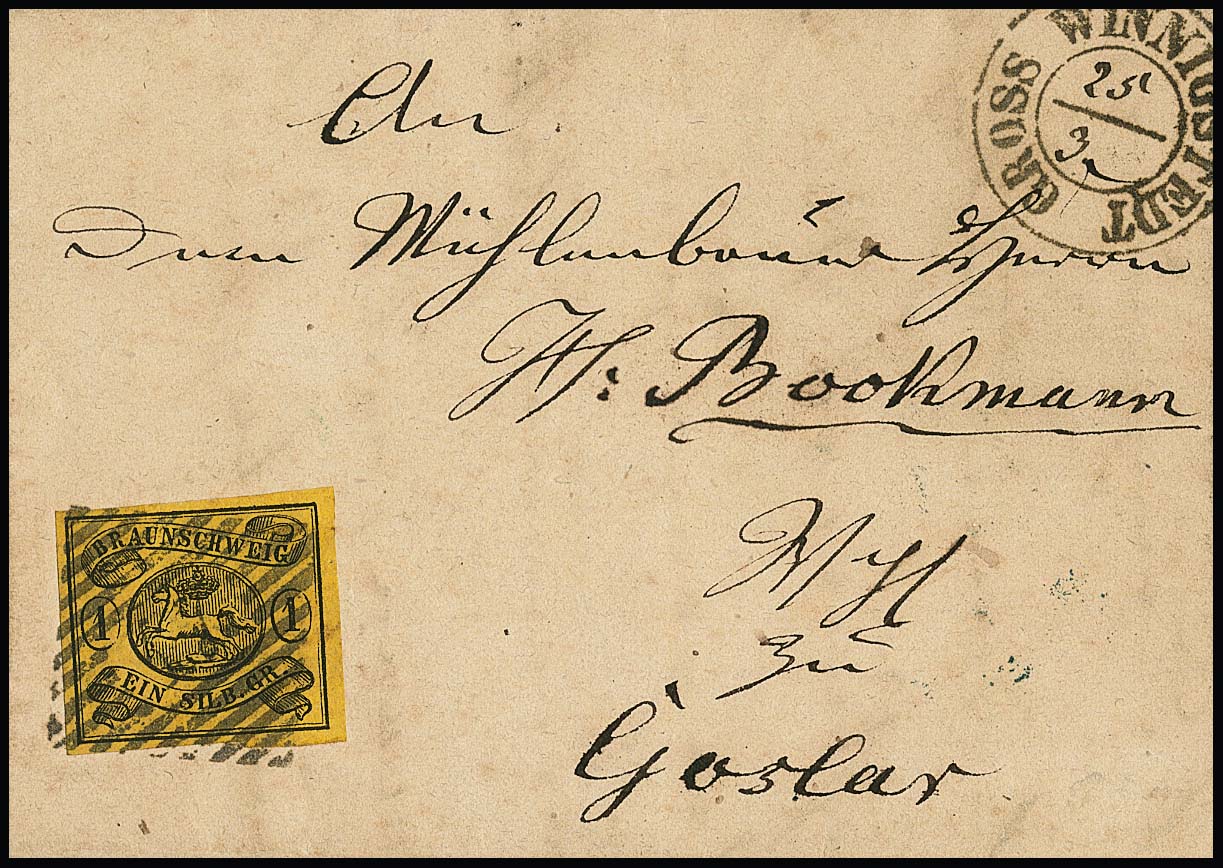 GROSS WINNIGSTEDT
25
3
An
Dem Mühlenbauer Herrn
H: Bookmann
zu
Goslar
BRAUNSCHWEIG
1 1
EIN SILB. GR.